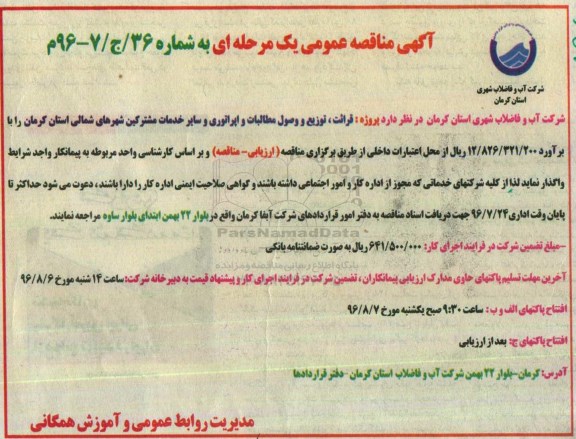 آگهی مناقصه عمومی یک مرحله ای به شماره ۳۶/ج/۷-۹۶م
شرکت آب و فاضلاب شهری
استان کرمان
شرکت آب و فاضلاب شهری استان کرمان در نظر دارد پروژه : قرائت ، توزیع و وصول مطالبات و اپراتوری و سایر خدمات مشترکین شهرهای شمالی استان کرمان را با
برآورد ۱۲/۸۲۶/۳۲۱/۲۰۰ ریال از محل اعتبارات داخلی از طریق برگزاری مناقصه (ارزیابی- مناقصه) و بر اساس کارشناسی واحد مربوطه به پیمانکار واجد شرایط
واگذار نماید لذا از کلیه شرکتهای خدماتی که مجوز از اداره کار و امور اجتماعی داشته باشند و گواهی صلاحیت ایمنی اداره کار را دارا باشند ، دعوت می شود حداکثر تا
پایان وقت اداری ۹۶/۷/۲۴ جهت دریافت اسناد مناقصه به دفتر امور قراردادهای شرکت آبفا کرمان واقع در بلوار ۲۲ بهمن ابتدای بلوار ساوه مراجعه نمایند.
-مبلغ تضمین شرکت در فرایند اجرای کار: ۶۴۱/۵۰۰/۰۰۰ ریال به صورت ضمانتنامه بانکی
آخرین مهلت تسلیم پاکتهای حاوی مدارک ارزیابی پیمانکاران ، تضمین شرکت در فرایند اجرای کار و پیشنهاد قیمت به دبیرخانه شرکت: ساعت ۱۴ شنبه مورخ ۹۶/۸/۶
افتتاح پاکتهای الف و ب : ساعت ۹:۳۰ صبح یکشنبه مورخ ۹۶/۸/۷
افتتاح پاکتهای ج: بعد از ارزیابی
آدرس: کرمان-بلوار ۲۲ بهمن شرکت آب و فاضلاب استان کرمان -دفتر قراردادها
مدیریت روابط عمومی و آموزش همگانی
ParsNamadData